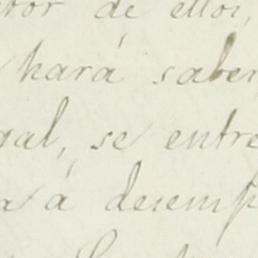 de ellos,
hará saber
gal, se entre
a á desemp